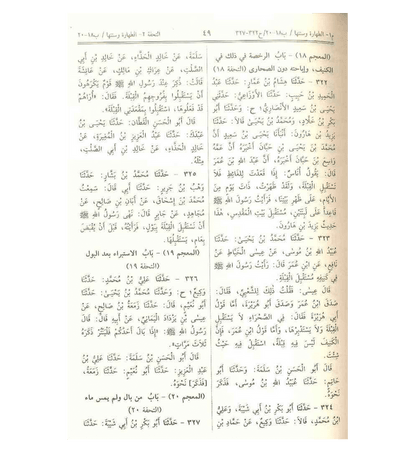 م١- الطهارة وسنتها / ب١٨-٢٠/ح٣٢٢-٣٢٧
٤٩
التحفة ٤- الطهارة وسنتها / ب١٨-٢٠
(المعجم ١٨) - بَابُ الرخصة في ذلك في
الكنيف، وإباحته دون الصحارى (التحفة ١٨)
٣٢٢ - حَدَّثَنَا هِشَامُ بْنُ عَمَّارٍ: حَدَّثَنَا عَبْدُ
الْحَمِيدِ بْنُ حَبِيبٍ: حَدَّثَنَا الْأَوْزَاعِيُّ: حَدَّثَنِي
يَحْيَى بْنُ سَعِيدٍ الْأَنْصَارِيُّ؛ ح: وَحَدَّثَنَا أَبُو
بَكْرِ بْنُ خَلَّادٍ، وَمُحَمَّدُ بْنُ يَحْيَى قَالَا: حَدَّثَنَا
يَزِيدُ بْنُ هَارُونَ: أَنْبَأَنَا يَحْيَى بْنُ سَعِيدٍ أَنَّ
مُحَمَّدَ بْنَ يَحْيَى بْنِ حَبَّانَ أَخْبَرَهُ أَنَّ عَمَّهُ
وَاسِعَ بْنَ حَبَّانَ أَخْبَرَهُ، أَنَّ عَبْدَ اللهِ بْنَ عُمَرَ
قَالَ: يَقُولُ أُنَاسٌ: إِذَا قَعَدْتَ لِلْغَائِطِ فَلَا
تَسْتَقْبِلِ الْقِبْلَةَ، وَلَقَدْ ظَهَرْتُ، ذَاتَ يَوْمٍ مِنَ
الْأَيَّامِ، عَلَى ظَهْرِ بَيْتِنَا، فَرَأَيْتُ رَسُولَ اللهِ ﷺ
قَاعِدًا عَلَى لَبِنَتَيْنِ، مُسْتَقْبِلَ بَيْتِ الْمَقْدِسِ، هَذَا
حَدِيثُ يَزِيدَ بْنِ هَارُونَ.
٣٢٣ - حَدَّثَنَا مُحَمَّدُ بْنُ يَحْيَى: حَدَّثَنَا
عُبَيْدُ اللهِ بْنُ مُوسَى، عَنْ عِيسَى الْحَنَّاطِ عَنْ
نَافِعٍ، عَنِ ابْنِ عُمَرَ قَالَ: رَأَيْتُ رَسُولَ اللهِ ﷺ
فِي كَنِيفِهِ مُسْتَقْبِلَ الْقِبْلَةِ.
قَالَ عِيسَى: فَقُلْتُ ذَلِكَ لِلشَّعْبِيِّ، فَقَالَ:
صَدَقَ ابْنُ عُمَرَ وَصَدَقَ أَبُو هُرَيْرَةَ، أَمَّا قَوْلُ
أَبِي هُرَيْرَةَ، فَقَالَ: فِي الصَّحْرَاءِ لَا يَسْتَقْبِلِ
الْقِبْلَةَ وَلَا يَسْتَدْبِرْهَا، وَأَمَّا قَوْلُ ابْنِ عُمَرَ، فَإِنَّ
الْكَنِيفَ لَيْسَ فِيهِ قِبْلَةٌ، اسْتَقْبِلْ فِيهِ حَيْثُ
شِئْتَ.
قَالَ أَبُو الْحَسَنِ بْنُ سَلَمَةَ: وَحَدَّثَنَا أَبُو
حَاتِمٍ: حَدَّثَنَا عُبَيْدُ اللهِ بْنُ مُوسَى، فَذَكَرَ
نَحْوَهُ.
٣٢٤ - حَدَّثَنَا أَبُو بَكْرِ بْنُ أَبِي شَيْبَةَ، وَعَلِيُّ
ابْنُ مُحَمَّدٍ، قَالَا: حَدَّثَنَا وَكِيعٌ، عَنْ حَمَّادِ بْنِ
سَلَمَةَ، عَنْ خَالِدٍ الْحَذَّاءِ، عَنْ خَالِدِ بْنِ أَبِي
الصَّلْتِ، عَنْ عِرَاكِ بْنِ مَالِكٍ، عَنْ عَائِشَةَ
قَالَتْ: ذُكِرَ عِنْدَ رَسُولِ اللهِ ﷺ قَوْمٌ يَكْرَهُونَ
أَنْ يَسْتَقْبِلُوا بِفُرُوجِهِمُ الْقِبْلَةَ. فَقَالَ: «أُرَاهُمْ
قَدْ فَعَلُوهَا، اسْتَقْبِلُوا بِمَقْعَدَتِي الْقِبْلَةَ».
قَالَ أَبُو الْحَسَنِ الْقَطَّانُ: حَدَّثَنَا يَحْيَى بْنُ
عُبَيْدٍ: حَدَّثَنَا عَبْدُ الْعَزِيزِ بْنُ الْمُغِيرَةِ، عَنْ
خَالِدٍ الْحَذَّاءِ، عَنْ خَالِدِ بْنِ أَبِي الصَّلْتِ،
مِثْلَهُ.
٣٢٥ - حَدَّثَنَا مُحَمَّدُ بْنُ بَشَّارٍ: حَدَّثَنَا
وَهْبُ بْنُ جَرِيرٍ: حَدَّثَنَا أَبِي، قَالَ: سَمِعْتُ
مُحَمَّدَ بْنَ إِسْحَاقَ، عَنْ أَبَانَ بْنِ صَالِحٍ، عَنْ
مُجَاهِدٍ، عَنْ جَابِرٍ قَالَ: نَهَى رَسُولُ اللهِ ﷺ
أَنْ نَسْتَقْبِلَ الْقِبْلَةَ بِبَوْلٍ، فَرَأَيْتُهُ، قَبْلَ أَنْ يُقْبَضَ
بِعَامٍ، يَسْتَقْبِلُهَا.
(المعجم ١٩) - بَابُ الاستبراء بعد البول
(التحفة ١٩)
٣٢٦ - حَدَّثَنَا عَلِيُّ بْنُ مُحَمَّدٍ: حَدَّثَنَا
وَكِيعٌ؛ ح: وَحَدَّثَنَا مُحَمَّدُ بْنُ يَحْيَى: حَدَّثَنَا
أَبُو نُعَيْمٍ، قَالَا: حَدَّثَنَا زَمْعَةُ بْنُ صَالِحٍ، عَنْ
عِيسَى بْنِ يَزْدَادَ الْيَمَانِيِّ، عَنْ أَبِيهِ قَالَ: قَالَ
رَسُولُ اللهِ ﷺ: «إِذَا بَالَ أَحَدُكُمْ فَلْيَنْتُرْ ذَكَرَهُ
ثَلَاثَ مَرَّاتٍ».
قَالَ أَبُو الْحَسَنِ بْنُ سَلَمَةَ: حَدَّثَنَا عَلِيُّ بْنُ
عَبْدِ الْعَزِيزِ: حَدَّثَنَا أَبُو نُعَيْمٍ: حَدَّثَنَا زَمْعَةُ،
[فَذَكَرَ] نَحْوَهُ.
(المعجم ٢٠) - بَابُ من بال ولم يمس ماء
(التحفة ٢٠)
٣٢٧ - حَدَّثَنَا أَبُو بَكْرِ بْنُ أَبِي شَيْبَةَ: حَدَّثَنَا